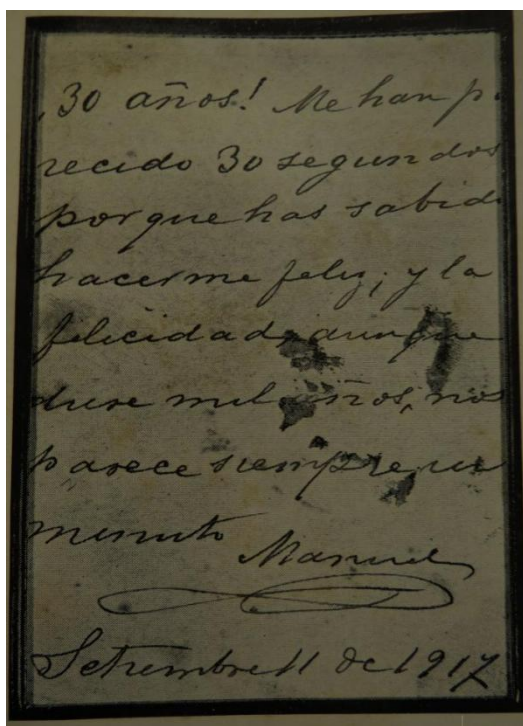 ¡30 años! Me han pa
recido 30 segundos
porque has sabido
hacerme feliz; y la
felicidad, aunque
dure mil años, nos
parece siempre un
minuto
Manuel
Setiembre 11 de 1917